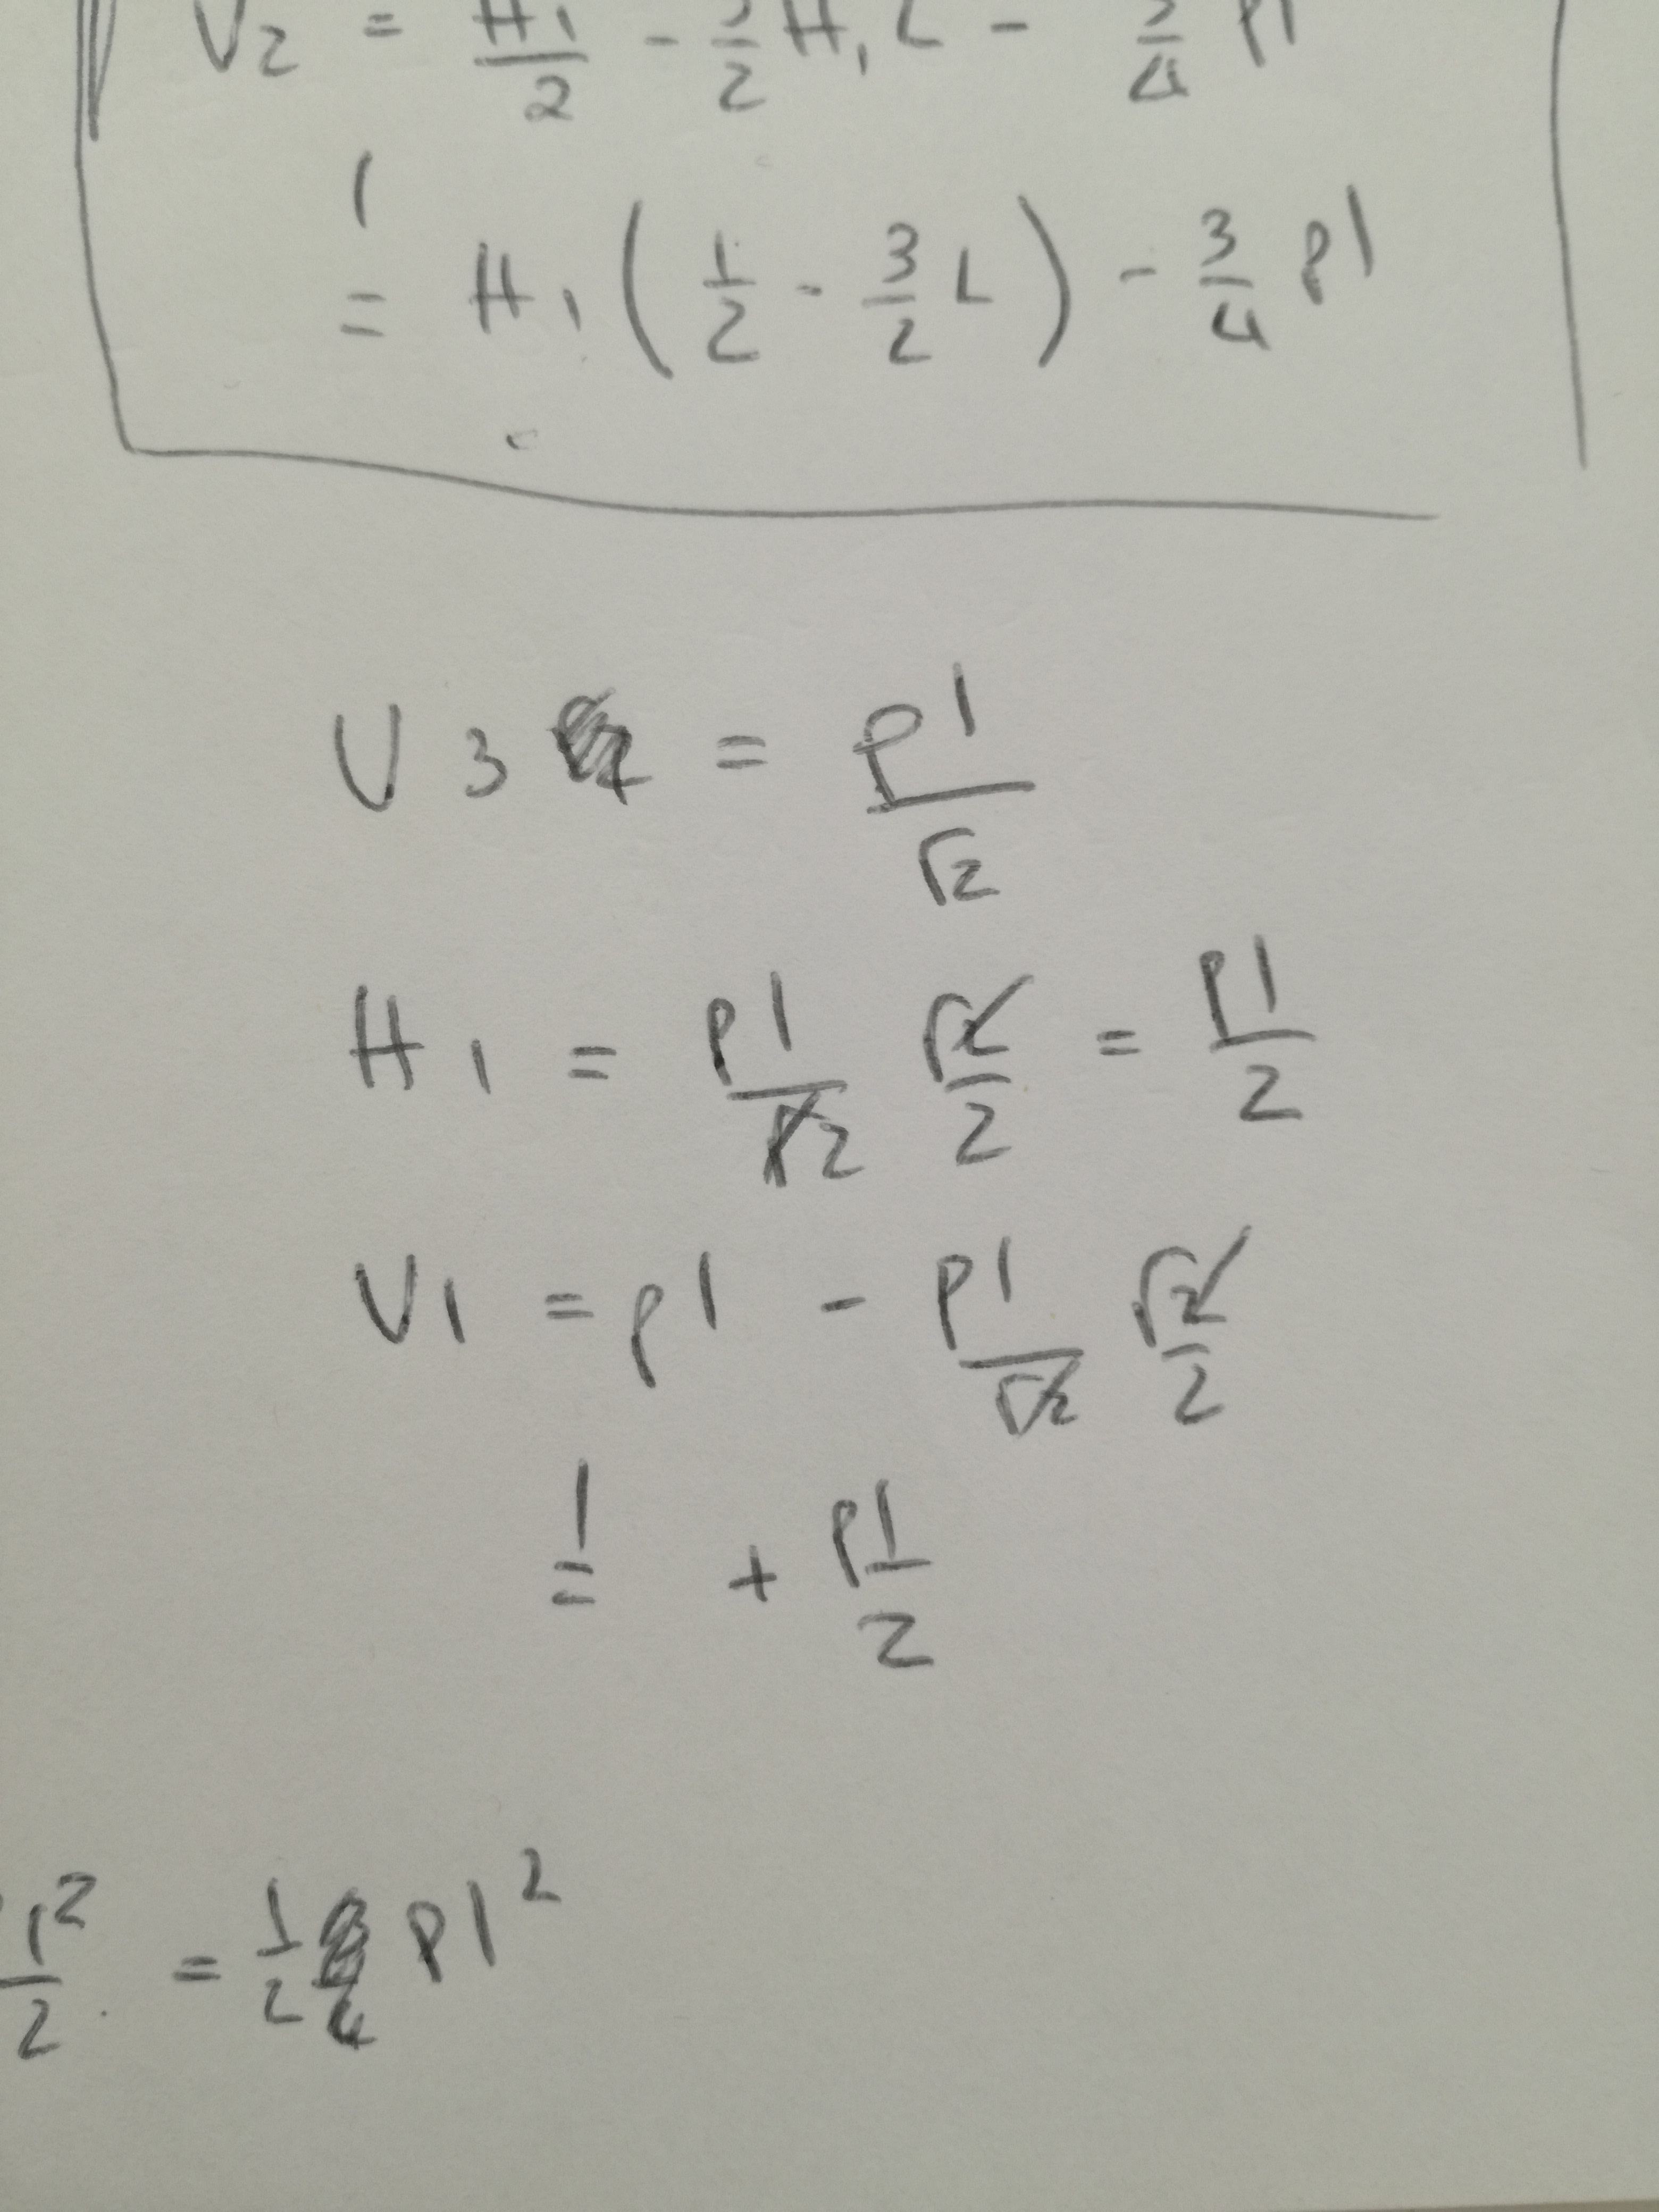 V2 = H1/2 - 3/2 H1 L - 3/4 pl
= H1 (1/2 - 3/2 L) - 3/4 pl
V3 = pl/√2
H1 = pl/√2 √2/2 = pl/2
V1 = pl - pl/√2 √2/2
= + pl/2
l²/2 = 1/2 pl²